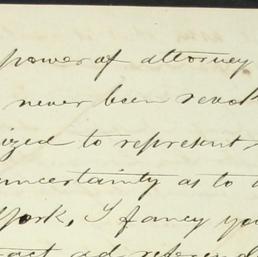 power of attorney
never been revok
ized to represent
uncertainty as to
York, I fancy you
act ad referen